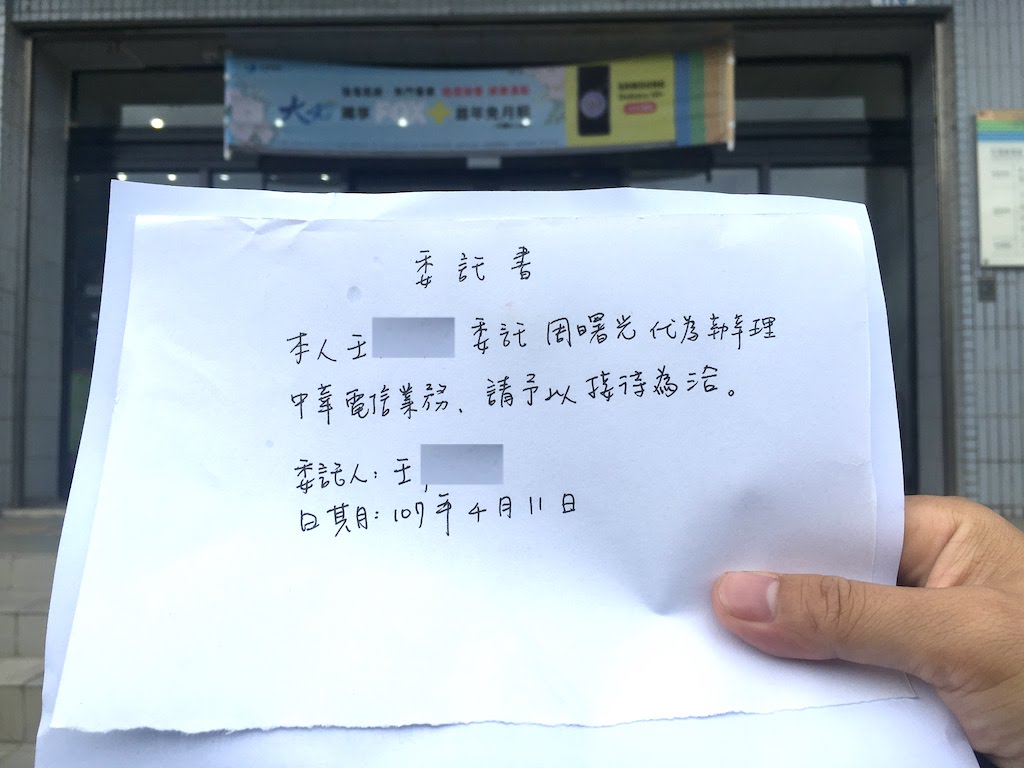 SAMSUNG
大4G
委託書
本人王 委託 周曙光 代為辦理
中華電信業務、請予以接待為洽。
委託人:王
日期:107年4月11日